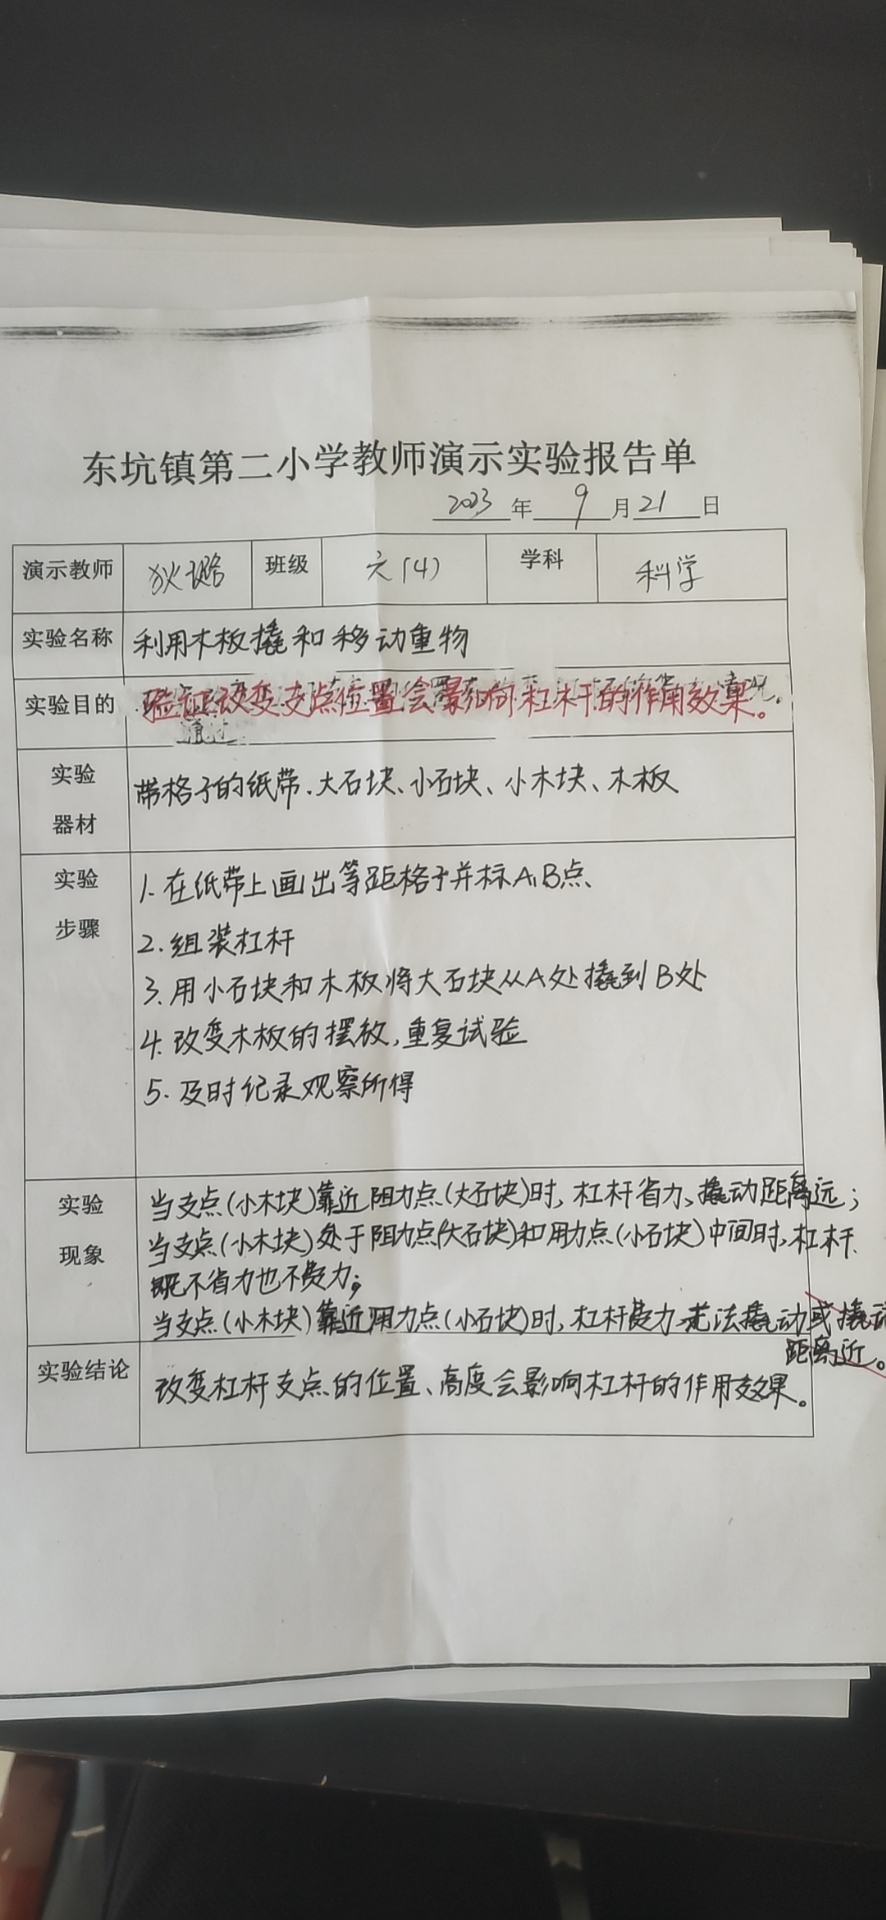 东坑镇第二小学教师演示实验报告单
2023年9月21日
演示教师 狄璐 班级 六(4) 学科 科学
实验名称 利用木板撬和移动重物
实验目的 验证改变支点位置会影响杠杆的作用效果。
实验器材 带格子的纸带、大石块、小石块、小木块、木板
实验步骤 1.在纸带上画出等距格子并标A、B点、
2.组装杠杆
3.用小石块和木板将大石块从A处撬到B处
4.改变木板的摆放,重复试验
5.及时记录观察所得
实验现象 当支点(小木块)靠近阻力点(大石块)时,杠杆省力、撬动距离远;
当支点(小木块)处于阻力点(大石块)和用力点(小石块)中间时,杠杆
既不省力也不费力;
当支点(小木块)靠近用力点(小石块)时,杠杆费力无法撬动或撬动
距离近。
实验结论 改变杠杆支点的位置、高度会影响杠杆的作用效果。